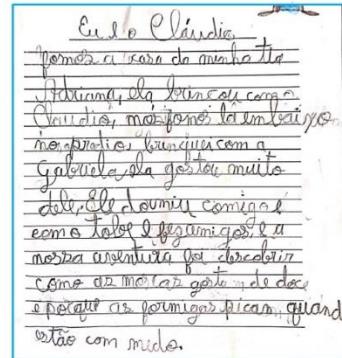 Eu e o Cláudio
fomos a casa da minha tia
Adriana, ela brincou com o
Claudio, nós fomos lá embaixo
no predio, brinquei com a
Gabriela ela gostou muito
dele. Ele dormiu comigo e
com a tobe e fez amigos, e a
nossa aventura foi descobrir
como as moscas gosta de doce
e porque as formigas picam, quand
estão com medo.